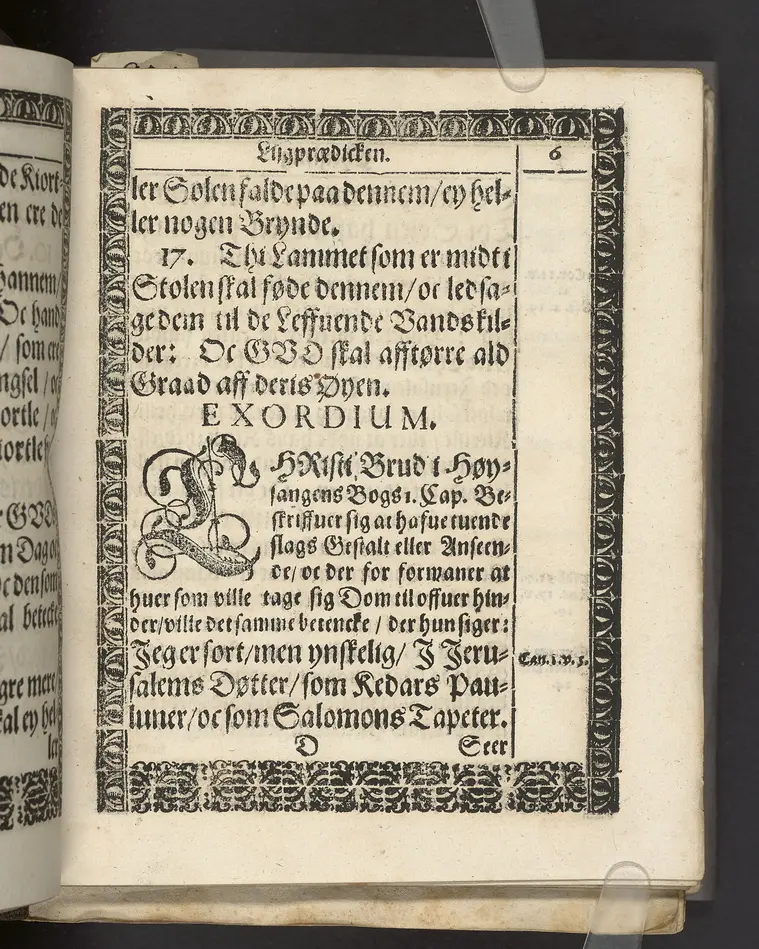 de Kiort-
en ere de
hannem/
Oc hand
/ som ere
ngsel / oc
ortle / o
iortle/
r GVD
n Dag oc
Oc den som
al betecke
gre mere/
kal ey hel-
ler
Lijgprædicken.
6
ler Solen falde paa dennem/ ey hel-
ler nogen Brynde.
17. Thi Lammet som er midt i
Stolen skal føde dennem/ oc ledsa-
ge dem til de Leffuende Vandskil-
der: Oc GVD skal afftørre ald
Graad aff deris Øyen.
EXORDIUM.
CHRisti Brud i Høy-
sangens Bogs 1. Cap. Be-
skriffuer sig at hafue tuende
slags Gestalt eller Anseen-
de/ oc der for forwaner at
huer som ville tage sig Dom til offuer hin-
der/ ville det samme betencke / der hun siger:
Jeg er sort/ men ynskelig/ J Jeru-
salems Døtter/ som Kedars Pau-
luner/ oc som Salomons Tapeter.
Can. 1. v. 5.
D
Seer